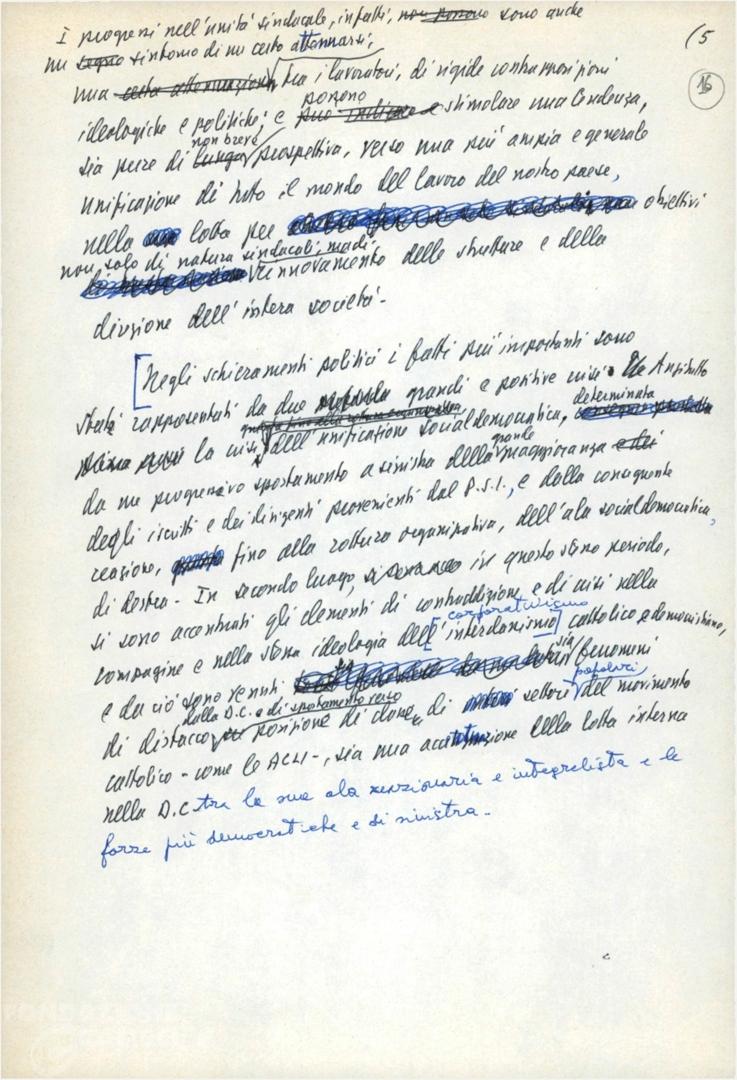 (5
16
I progressi nell'unità sindacale, infatti, non possono sono anche
un segno sintomo di un certo attenuarsi,
una certa attenuazione tra i lavoratori, di rigide contrapposizioni
possono
ideologiche e politiche; e può stimolare una tendenza,
non breve
sia pure di lunga prospettiva, verso una più ampia e generale
unificazione di tutto il mondo del lavoro del nostro paese,
nella lotta per obiettivi
non solo di natura sindacali, ma di
rinnovamento delle strutture e della
direzione dell'intera società.
[Negli schieramenti politici i fatti più importanti sono
stati rappresentati da due grandi e positive crisi. Anzitutto
determinata
la crisi dell'unificazione socialdemocratica,
grande
da un progressivo spostamento a sinistra della maggioranza e dei
degli iscritti e dei dirigenti provenienti dal P.S.I., e dalla conseguente
reazione, fino alla rottura organizzativa, dell'ala socialdemocratica,
di destra. In secondo luogo, in questo stesso periodo,
si sono accentuati gli elementi di contraddizione e di crisi nella
corporativismo
compagine e nella stessa ideologia dell'interclassismo cattolico e democristiano,
e da ciò sono venuti sia fenomeni
dalla D.C. e di spostamento verso
popolari
di distacco posizione di classe, di settori del movimento
cattolico - come le ACLI -, sia una accentuazione della lotta interna
nella D.C. tra la sua ala reazionaria e integralista e le
forze più democratiche e di sinistra.